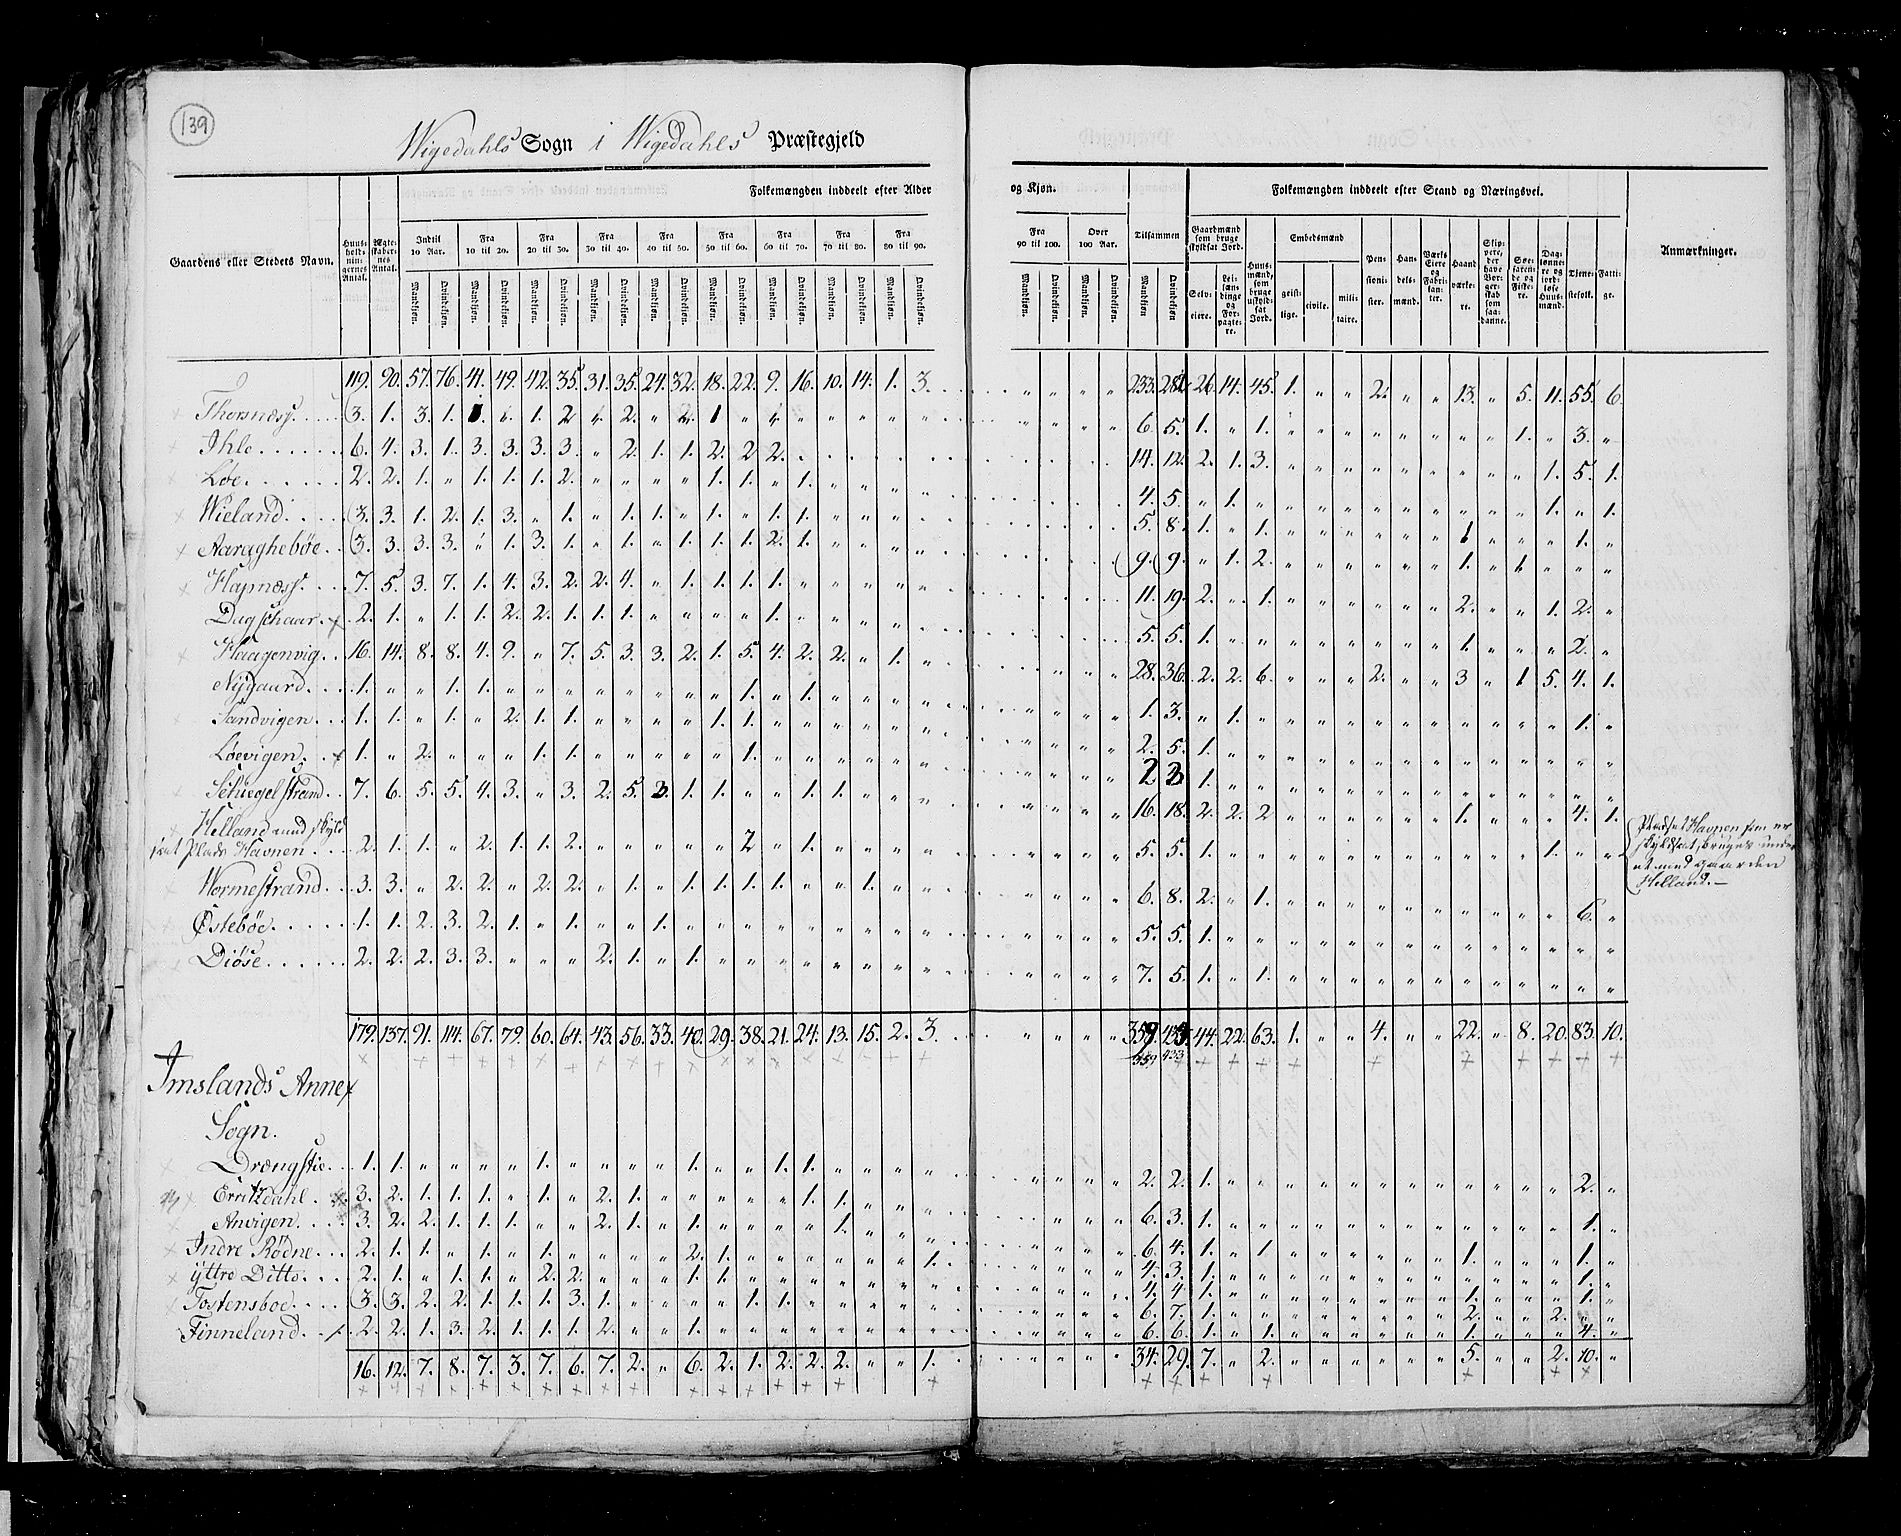 139
Wigedahls Sogn i Wigedahls Præstegjeld
Gaardens eller Stedets Navn.
Huus-holdningernes Antal.
Ægteskabernes Antal.
Folkemængden inddeelt efter Alder og Kjøn.
Indtil 10 Aar.
Fra 10 til 20.
Fra 20 til 30.
Fra 30 til 40.
Fra 40 til 50.
Fra 50 til 60.
Fra 60 til 70.
Fra 70 til 80.
Fra 80 til 90.
Fra 90 til 100.
Over 100 Aar.
Tilsammen
Mandkjøn. Qvindekjøn.
Folkemængden inddeelt efter Stand og Næringsvei.
Gaardmænd som bruge skyldsat Jord.
Selveiere.
Leilændinge og Forpagtere.
Huusmænd, som bruge uskyldsat Jord.
Embedsmænd
geistlige. civile. militaire.
Pensionister.
Handelsmænd.
Værks Eiere og Fabrikanter.
Haandværkere.
Skippere, der have Borgerskab som saadanne.
Søefarende og Fiskere.
Daglønnere og jordløse Huusmænd.
Tjenestefolk.
Fattige.
Anmærkninger.
119. 90. 57. 76. 41. 49. 42. 35. 31. 35. 24. 32. 18. 22. 9. 16. 10. 14. 1. 3. 233. 26. 14. 45. 1. " " 2. " " 13. " 5. 11. 55. 6.
Thorsnæss. 3. 1. 3. 1. 1. " 1. 2 " 2. " 2. 1 " " 6. 5. 1. " 1. 1. " 3. "
Ihle 6. 4. 3. 1. 3. 3. 3. 3. " 2. 1. 1. 2. 2 2. 14. 12. 2. 1. 3. 1. 5. 1.
Løe. 2. 2. 1. " 1. 1. 1. 2. " " " " 1. 1. " 1. 4. 5. " 1. 1. " 1.
Wieland. 3. 3. 1. 2. 1. 3. " 1. " 1. 1. " 1. " 1. 1. 5. 8. 1. " 1. 1 " " " 1. "
Aaraghebøe. 3. 3. 3. 3. " 1. 3. 1. " 1. " 1. 1. 1. 2. 1. 9. 9. " 1. 2. 1. " 1 " " "
Hapnæss. 7. 5. 3. 7. 1. 4. 3. 2. 2. 4. " 1. 1. 1. 1. 11. 19. 2. " 1. 2. " " 1. 2. "
Dagschaar. 2. 1. " 1. 1. 2. 2. 1. 1. 1. " " " " 1. 5. 5. 1. 1. " " " 2. "
Haagenvig. 16. 14. 8. 8. 4. 9. " 7. 5. 3. 3. 2. 1. 5. 4. 2. 2. " 1. 28. 36. 2. 2. 6. 2. " " 3 " 1 5. 4. 1.
Nygaard. 1. " " 1. 1. " " " " " " " " 1. " 1. 1. 3. " 1. 1. "
Sandvigen. 1. 1. " 1. " 2. 1. 1. " " " " 1. 1. 2. 5. 1.
Løevigen. 1. " 2. " " " 1. 1. " " " " " 1. 2 3 1.
Schiegelstrand. 7. 6. 5. 5. 4. 3. " 3. 2. 5. 3. 1. 1. " " 1. 1. 16. 18. 2. 2. 2 1. " " " 4. 1.
Helland med skyld
sat Plads Havnen. 2. 1. 1. " 2. 1. 1. 2. " " " " " 2 " 1. 5. 5. 1. 1. " "
Pladset Havnen som er
skyldsat, bruges under
et med gaarden
Helland.—
Wormestrand. 3. 3. " 2. 2. " 2. 2. " 1. " 1. 1. 1. 1. " " 1. 6. 8. 2. " 1. 6. "
Østebøe. 1. 1. 2. 3. 2. 1. " 1. " " 1. 5. 5. 1.
Diöse. 2. 2. 2. 3. 3. " " " 2. 1. " 1. 7. 5. 1. " 1.
179. 137. 91. 114. 67. 79. 60. 64. 43. 56. 33. 40. 29. 38. 21. 24. 13. 15. 2. 3. 359 433. 44. 22. 63. 1. " " 4. " " 22. " 8. 20. 83. 10.
359 433
Imslands Annex
Sogn.
Drængstie. 1. 1. " " " " 1. " " " " 1. " " 1. 1. 2. 2. 1. 2. "
Errikdahl. 3. 2. 1. 1. 1. " 1. " 2. 1. " " " " " 1. 1. 6. 3. 1. 1. "
Anvigen. 3. 2. 2. 1. 1. 1. " " 2. 1. " 1. " " " " 1. 6. 4. 1. " 1 1. " " " 1. "
Indre Rödne. 2. 1. 1. " 1. " 1. " " " " 2. 1. 1. 4. 3. 1. 1. "
ÿttre Ditto. 2. 1. " 1. 1. " 2. 2. " " " 1. 1. 4. 4. 1. 1. " " " 1. "
Tostensboe. 3. 3. 2. 2. 1. 1. 1. 3. 1. " " " " 1. 1. 6. 7. 1. 2. " " 2. " "
Finneland. 2. 2. 1. 3. 2. 1. 1. 1. 2. " " 1. 6. 6. 1. " 1. 1. " " " 4. "
16. 12. 7. 8. 7. 3. 7. 6. 7. 2. " 6. 2. 1. 2. 2. 2. " " 1. 34. 29. 7. " 2. 5. " " 2. 10. "